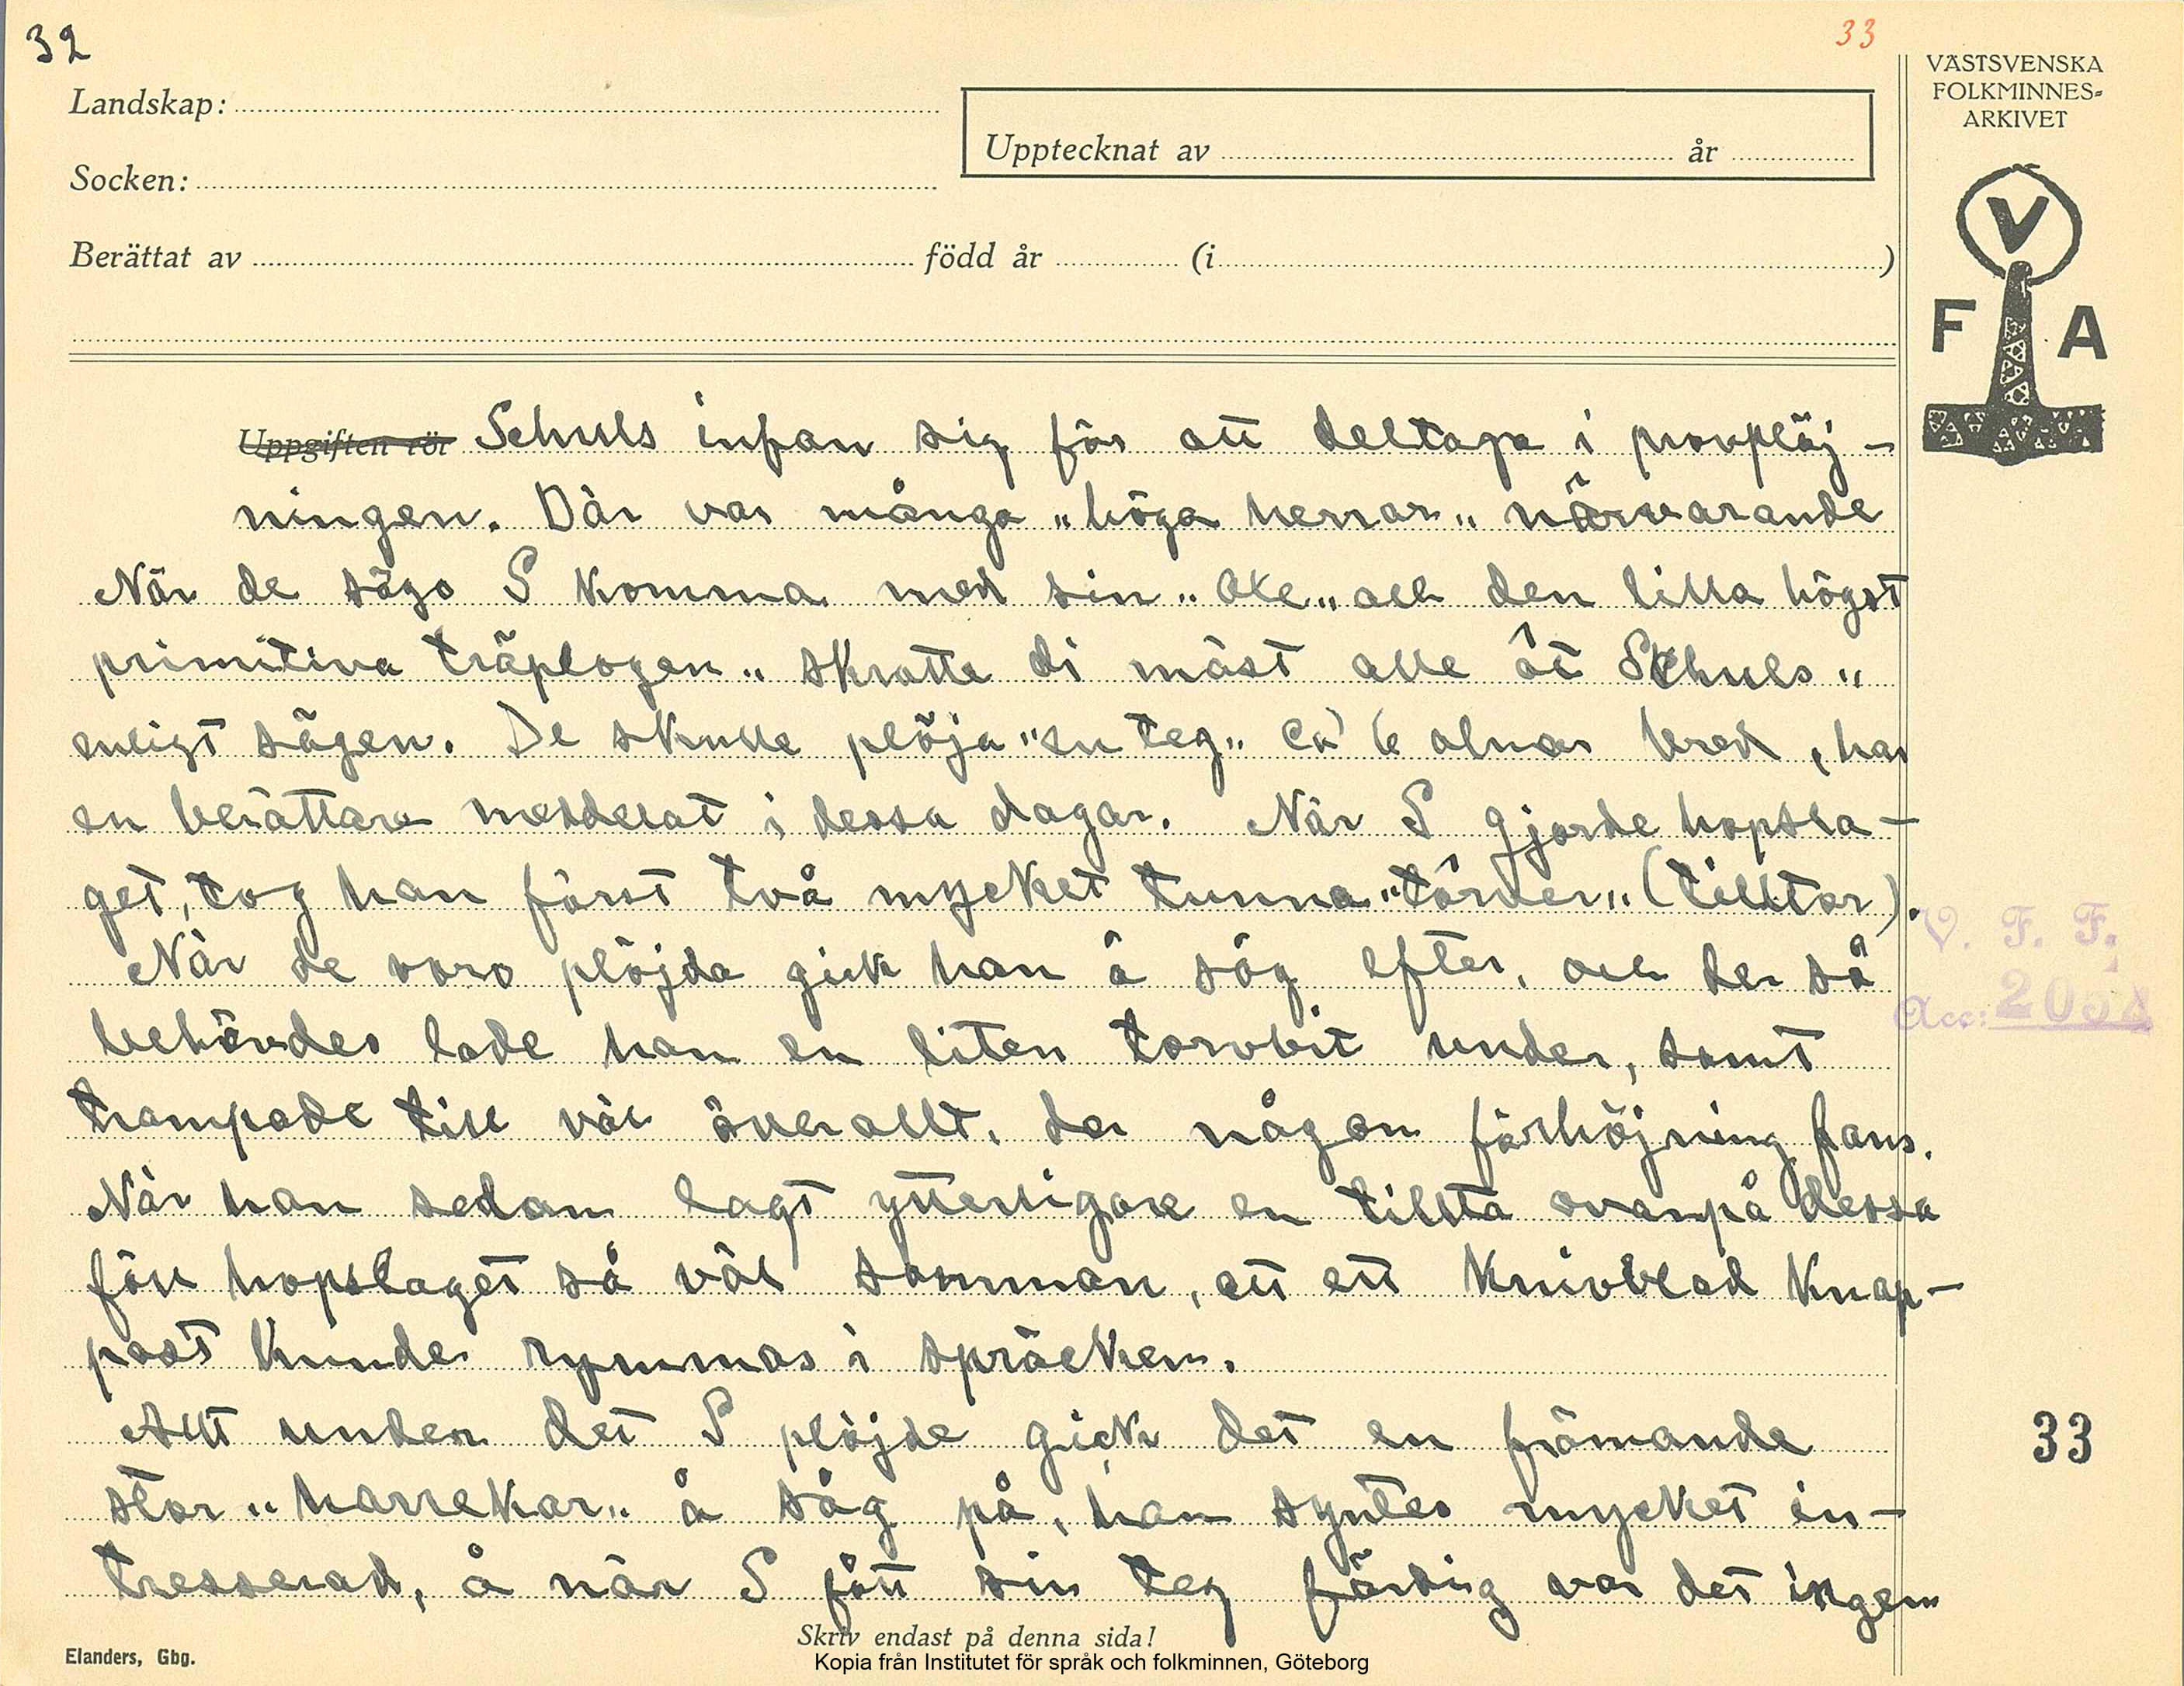 32
33
VÄSTSVENSKA
FOLKMINNES=
ARKIVET
Landskap:
Upptecknat av år
Socken:
Berättat av född år (i )
V
F A
Uppgiften rör Schuls infan sig för att deltaga i provplöj-
ningen. Där var många "höga herrar" närvarande
När de sågo S komma med sin "Oke" och den lilla högst
primitiva träplogen" skratte di mäst alle åt Schuls"
enligt sägen. De skulle plöja "en teg" ca 6 alnar bred, har
en berättare meddelat i dessa dagar. När S gjorde hopsla-
get, tog han först två mycket tunna "törver" (tilltor).
När de voro plöjda gick han å såg efter, och der så
behövdes lade han en liten torvbit under, samt
trampade till väl överallt, der någon förhöjning fans.
När han sedan lagt ytterligare en tillta ovanpå dessa
föll hopslaget så väl samman, att ett knivblad knap-
past kunde rymmas i spräcken.
Allt under det S plöjde gick det en främande
stor "harrekar" å såg på, han syntes mycket in-
tresserad, å när S fått sin teg färdig var det ingen
V. F. F.
Acc:
33
Skriv endast på denna sida!
Elanders, Gbg.
Kopia från Institutet för språk och folkminnen, Göteborg